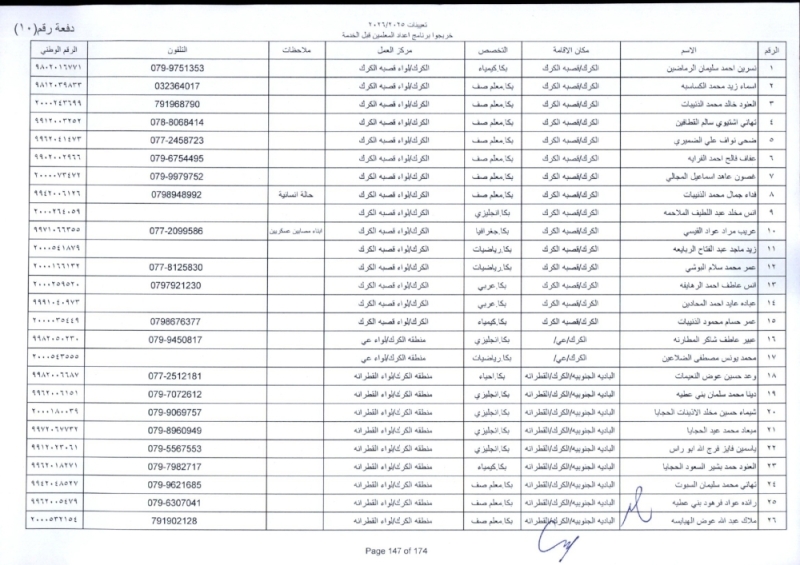 تعيينات ٢٠٢٦/٢٠٢٥
خريجوا برنامج اعداد المعلمين قبل الخدمة
دفعة رقم(١٠)
الرقم الاسم مكان الاقامة التخصص مركز العمل ملاحظات التلفون الرقم الوطني
١ نسرين احمد سليمان الرماضين الكرك/قصبه الكرك بكا.كيمياء الكرك/لواء قصبه الكرك 079-9751353 ٩٨٠٢٠١٦٧٧١
٢ اسماء زيد محمد الكساسبه الكرك/قصبه الكرك بكا.معلم صف الكرك/لواء قصبه الكرك 032364017 ٩٨١٢٠٣٩٨٣٣
٣ العنود خالد محمد الذنيبات الكرك/قصبه الكرك بكا.معلم صف الكرك/لواء قصبه الكرك 791968790 ٢٠٠٠٢٤٣٦٩٩
٤ تهاني اشتيوي سالم القطاقين الكرك/قصبه الكرك بكا.معلم صف الكرك/لواء قصبه الكرك 078-8068414 ٩٩١٢٠٠٣٢٥٢
٥ ضحى نواف علي الضميري الكرك/قصبه الكرك بكا.معلم صف الكرك/لواء قصبه الكرك 077-2458723 ٩٩٦٢٠٤١٤٧٣
٦ عفاف فالح احمد القرايه الكرك/قصبه الكرك بكا.معلم صف الكرك/لواء قصبه الكرك 079-6754495 ٩٩٠٢٠٠٢٩٦٦
٧ غصون عاهد اسماعيل المجالي الكرك/قصبه الكرك بكا.معلم صف الكرك/لواء قصبه الكرك 079-9979752 ٢٠٠٠٠٧٣٤٧٢
٨ فداء جمال محمد الذنيبات الكرك/قصبه الكرك بكا.معلم صف الكرك/لواء قصبه الكرك حالة انسانية 0798948992 ٩٩٤٢٠٠٦١٢٦
٩ انس مخلد عبد اللطيف الملاحمه الكرك/قصبه الكرك بكا.انجليزي الكرك/لواء قصبه الكرك ٢٠٠٠٢٦٤٠٥٩
١٠ عريب مراد عواد القيسي الكرك/قصبه الكرك بكا.جغرافيا الكرك/لواء قصبه الكرك ابناء مصابين عسكريين 077-2099586 ٩٩٧١٠٦٦٣٥٥
١١ زيد ماجد عبد الفتاح الربايعه الكرك/قصبه الكرك بكا.رياضيات الكرك/لواء قصبه الكرك ٢٠٠٠٥٤١٨٧٩
١٢ عمر محمد سلام النوشي الكرك/قصبه الكرك بكا.رياضيات الكرك/لواء قصبه الكرك 077-8125830 ٢٠٠٠١٦٦١٣٢
١٣ انس عاطف احمد الرهايفه الكرك/قصبه الكرك بكا.عربي الكرك/لواء قصبه الكرك 0797921230 ٢٠٠٠٢٥٩٥٢٠
١٤ عباده عايد احمد المحادين الكرك/قصبه الكرك بكا.عربي الكرك/لواء قصبه الكرك ٩٩٩١٠٤٠٩٧٣
١٥ عمر حسام محمود الذنيبات الكرك/قصبه الكرك بكا.كيمياء الكرك/لواء قصبه الكرك 0798676377 ٢٠٠٠٠٣٥٤٤٩
١٦ عبير عاطف شاكر المطارنه الكرك/عي/ بكا.انجليزي منطقه الكرك/لواء عي 079-9450817 ٩٩٨٢٠٥٠٢٣٠
١٧ محمد يونس مصطفى الضلاعين الكرك/عي/ بكا.رياضيات منطقه الكرك/لواء عي ٢٠٠٠٥٤٣٥٥٥
١٨ وعد حسين عوض النعيمات الباديه الجنوبيه/الكرك/القطرانه بكا.احياء منطقه الكرك/لواء القطرانه 077-2512181 ٩٩٨٢٠٠٦٦٨٧
١٩ دينا محمد سلمان بني عطيه الباديه الجنوبيه/الكرك/القطرانه بكا.انجليزي منطقه الكرك/لواء القطرانه 079-7072612 ٩٩٦٢٠٠٦١٥١
٢٠ شيماء حسين مخلد الاثبنات الحجايا الباديه الجنوبيه/الكرك/القطرانه بكا.انجليزي منطقه الكرك/لواء القطرانه 079-9069757 ٢٠٠٠١٨٠٠٣٩
٢١ ميعاد محمد عيد الحجايا الباديه الجنوبيه/الكرك/القطرانه بكا.انجليزي منطقه الكرك/لواء القطرانه 079-8960949 ٩٩٧٢٠٦٧٧٣٢
٢٢ ياسمين فايز فرج الله ابو راس الباديه الجنوبيه/الكرك/القطرانه بكا.انجليزي منطقه الكرك/لواء القطرانه 079-5567553 ٩٩١٢٠٢٣٠٦١
٢٣ العنود حمد بشير السعود الحجايا الباديه الجنوبيه/الكرك/القطرانه بكا.كيمياء منطقه الكرك/لواء القطرانه 079-7982717 ٩٩٦٢٠١٨٢٧١
٢٤ تهاني محمد سليمان السبوت الباديه الجنوبيه/الكرك/القطرانه بكا.معلم صف منطقه الكرك/لواء القطرانه 079-9621685 ٩٩٤٢٠٤٨٥٢٧
٢٥ رائده عواد فرهود بني عطيه الباديه الجنوبيه/الكرك/القطرانه بكا.معلم صف منطقه الكرك/لواء القطرانه 079-6307041 ٩٩٦٢٠٠٥٤٧٩
٢٦ ملاك عبد الله عوض الهبايسه الباديه الجنوبيه/الكرك/القطرانه بكا.معلم صف منطقه الكرك/لواء القطرانه 791902128 ٢٠٠٠٥٣٢١٥٤
Page 147 of 174